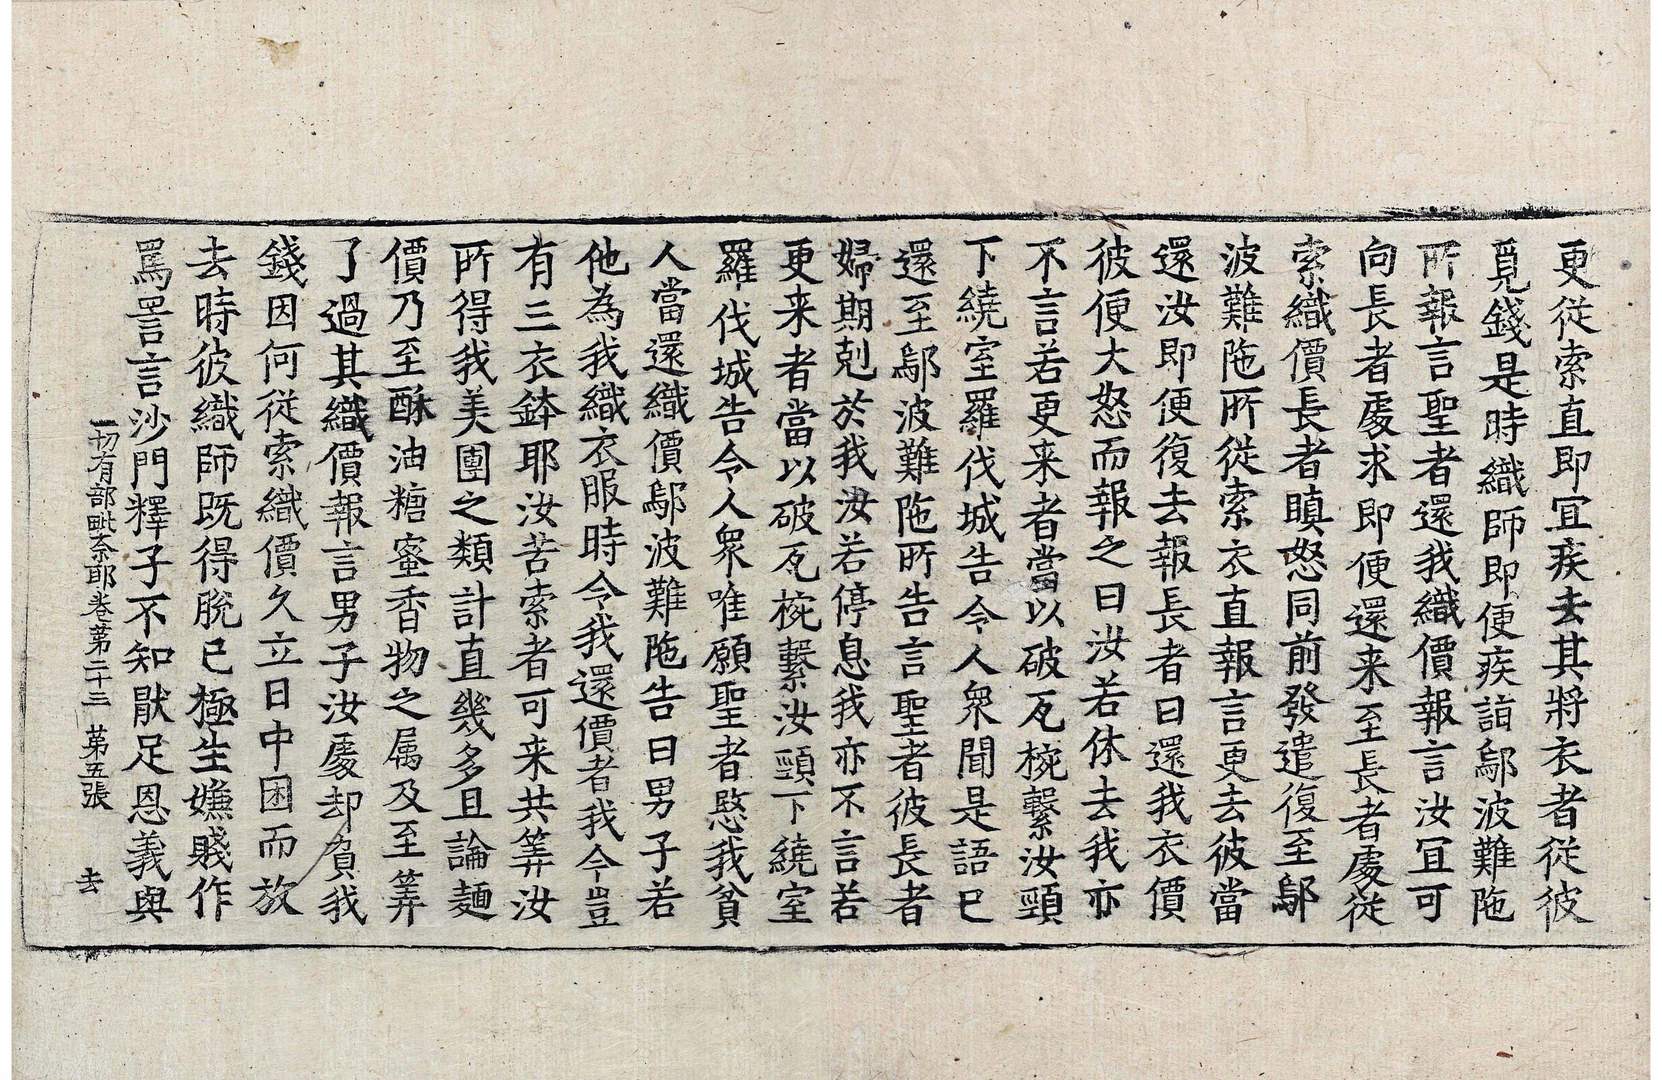 更從索直即宜疾去其將衣者從彼
覓錢是時織師即便疾詣鄔波難陁
所報言聖者還我織價報言汝宜可
向長者處求即便還来至長者處從
索織價長者瞋怒同前發遣復至鄔
波難陁所從索衣直報言更去彼當
還汝即便復去報長者曰還我衣價
彼便大怒而報之曰汝若休去我亦
不言若更来者當以破瓦椀繫汝頸
下繞室羅伐城告令人衆聞是語已
還至鄔波難陁所告言聖者彼長者
婦期剋於我汝若停息我亦不言若
更来者當以破瓦椀繫汝頸下繞室
羅伐城告令人衆唯願聖者愍我貧
人當還織價鄔波難陁告曰男子若
他為我織衣服時令我還價者我今豈
有三衣鉢耶汝苦索者可来共筭汝
所得我美團之類計直幾多且論麵
價乃至酥油糖蜜香物之属及至筭
了過其織價報言男子汝處却負我
錢因何從索織價久立日中困而放
去時彼織師既得脫已極生嫌賤作
罵詈言沙門釋子不知猒足恩義與
一切有部毗奈耶卷第二十三　第五張　去